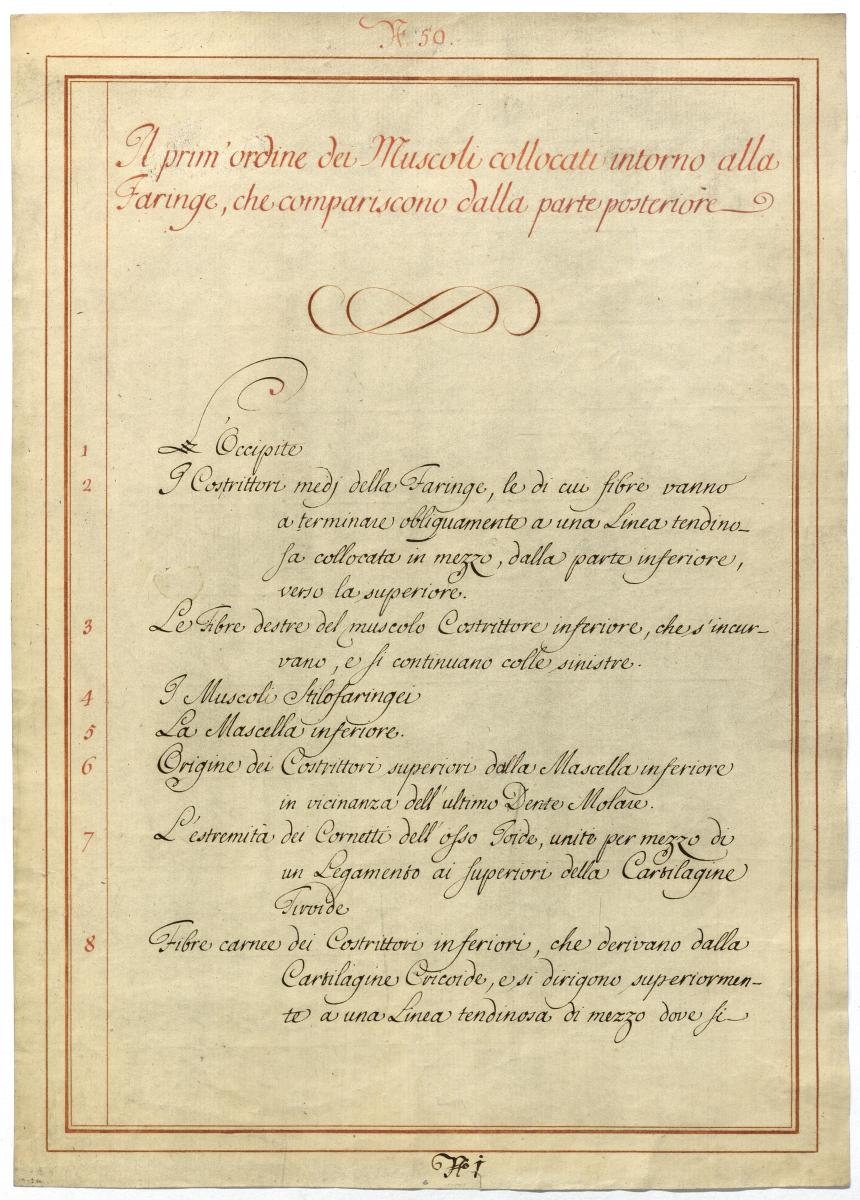 N. 50.
Il prim' ordine dei Muscoli collocati intorno alla
Faringe, che compariscono dalla parte posteriore
1 L'Occipite
2 I Costrittori medj della Faringe, le di cui fibre vanno
a terminare obliquamente a una Linea tendino-
sa collocata in mezzo, dalla parte inferiore,
verso la superiore.
3 Le Fibre destre del muscolo Costrittore inferiore, che s'incur-
vano, e si continuano colle sinistre.
4 I Muscoli Stilofaringei
5 La Mascella inferiore.
6 Origine dei Costrittori superiori dalla Mascella inferiore
in vicinanza dell' ultimo Dente Molare.
7 L'estremità dei Cornetti dell' osso Ioide, unite per mezzo di
un Legamento ai superiori della Cartilagine
Tiroide
8 Fibre carnee dei Costrittori inferiori, che derivano dalla
Cartilagine Cricoide, e si dirigono superiormen-
te a una Linea tendinosa di mezzo dove si
No 1